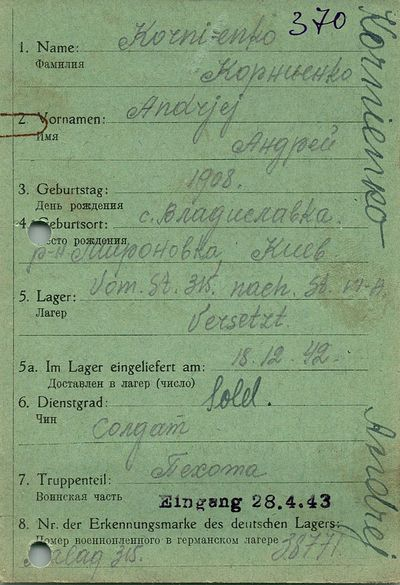 370
1. Name: Kornienko
Фамилия
Корниенко
2. Vornamen: Andrjej
Имя
Андрей
3. Geburtstag: 1908.
День рождения
4. Geburtsort: с. Владиславка.
Место рождения
р-н Мироновка, Киев.
5. Lager: Vom. St. 315. nach. St.
Лагерь
Versetzt.
5a. Im Lager eingeliefert am: 18.12.42.
Доставлен в лагерь (число)
6. Dienstgrad: Sold.
Чин
Солдат
7. Truppenteil: Пехота
Воинская часть
Eingang 28.4.43
8. Nr. der Erkennungsmarke des deutschen Lagers:
Номер военнопленного в германском лагере 38771.
Stalag 315.
Kornienko
Andrej